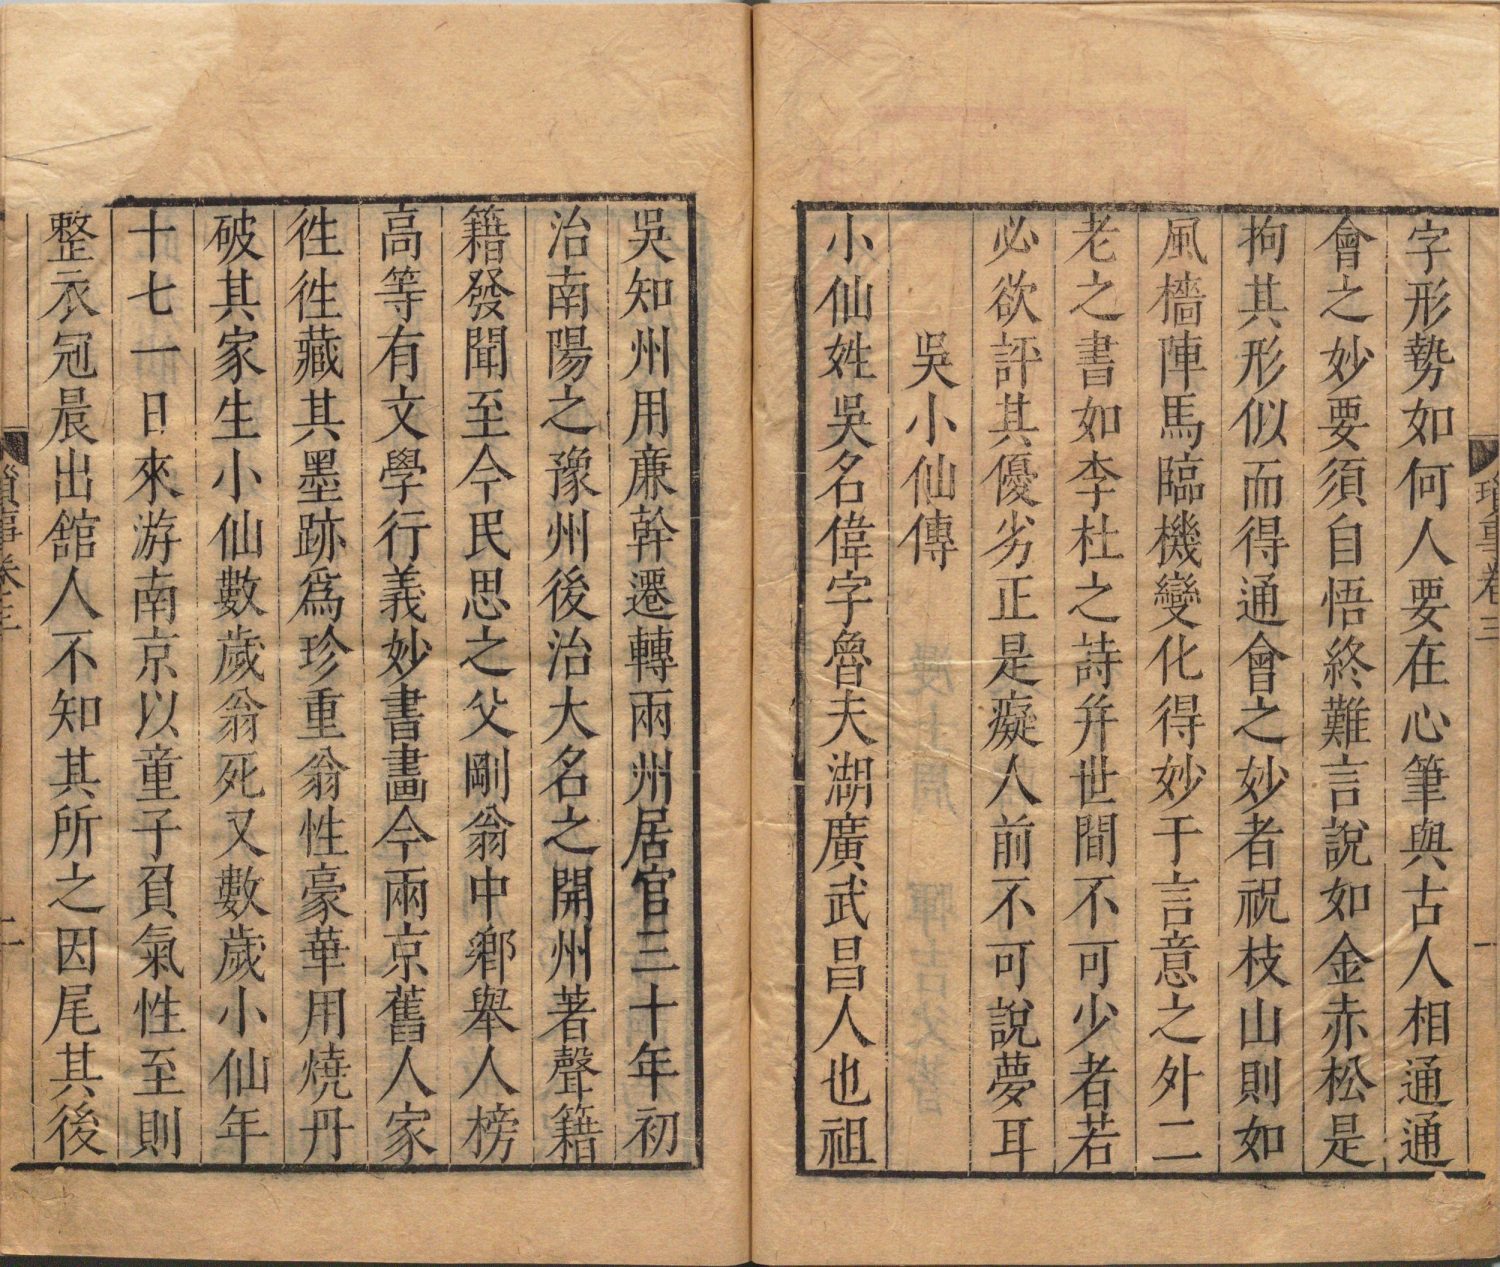 瑣事卷三
一
字形勢如何人要在心筆與古人相通通
會之妙要須自悟終難言說如金赤松是
拘其形似而得通會之妙者祝枝山則如
風檣陣馬臨機變化得妙于言意之外二
老之書如李杜之詩并世間不可少者若
必欲評其優劣正是癡人前不可說夢耳
吳小仙傳
小仙姓吳名偉字魯夫湖廣武昌人也祖
吳知州用廉幹遷轉兩州居官三十年初
治南陽之豫州後治大名之開州著聲籍
籍發聞至今民思之父剛翁中鄉舉人榜
高等有文學行義妙書畫今兩京舊人家
徃徃藏其墨跡爲珍重翁性豪華用燒丹
破其家生小仙數歲翁死又數歲小仙年
十七一日來游南京以童子負氣性至則
整衣冠晨出館人不知其所之因尾其後
瑣事卷三